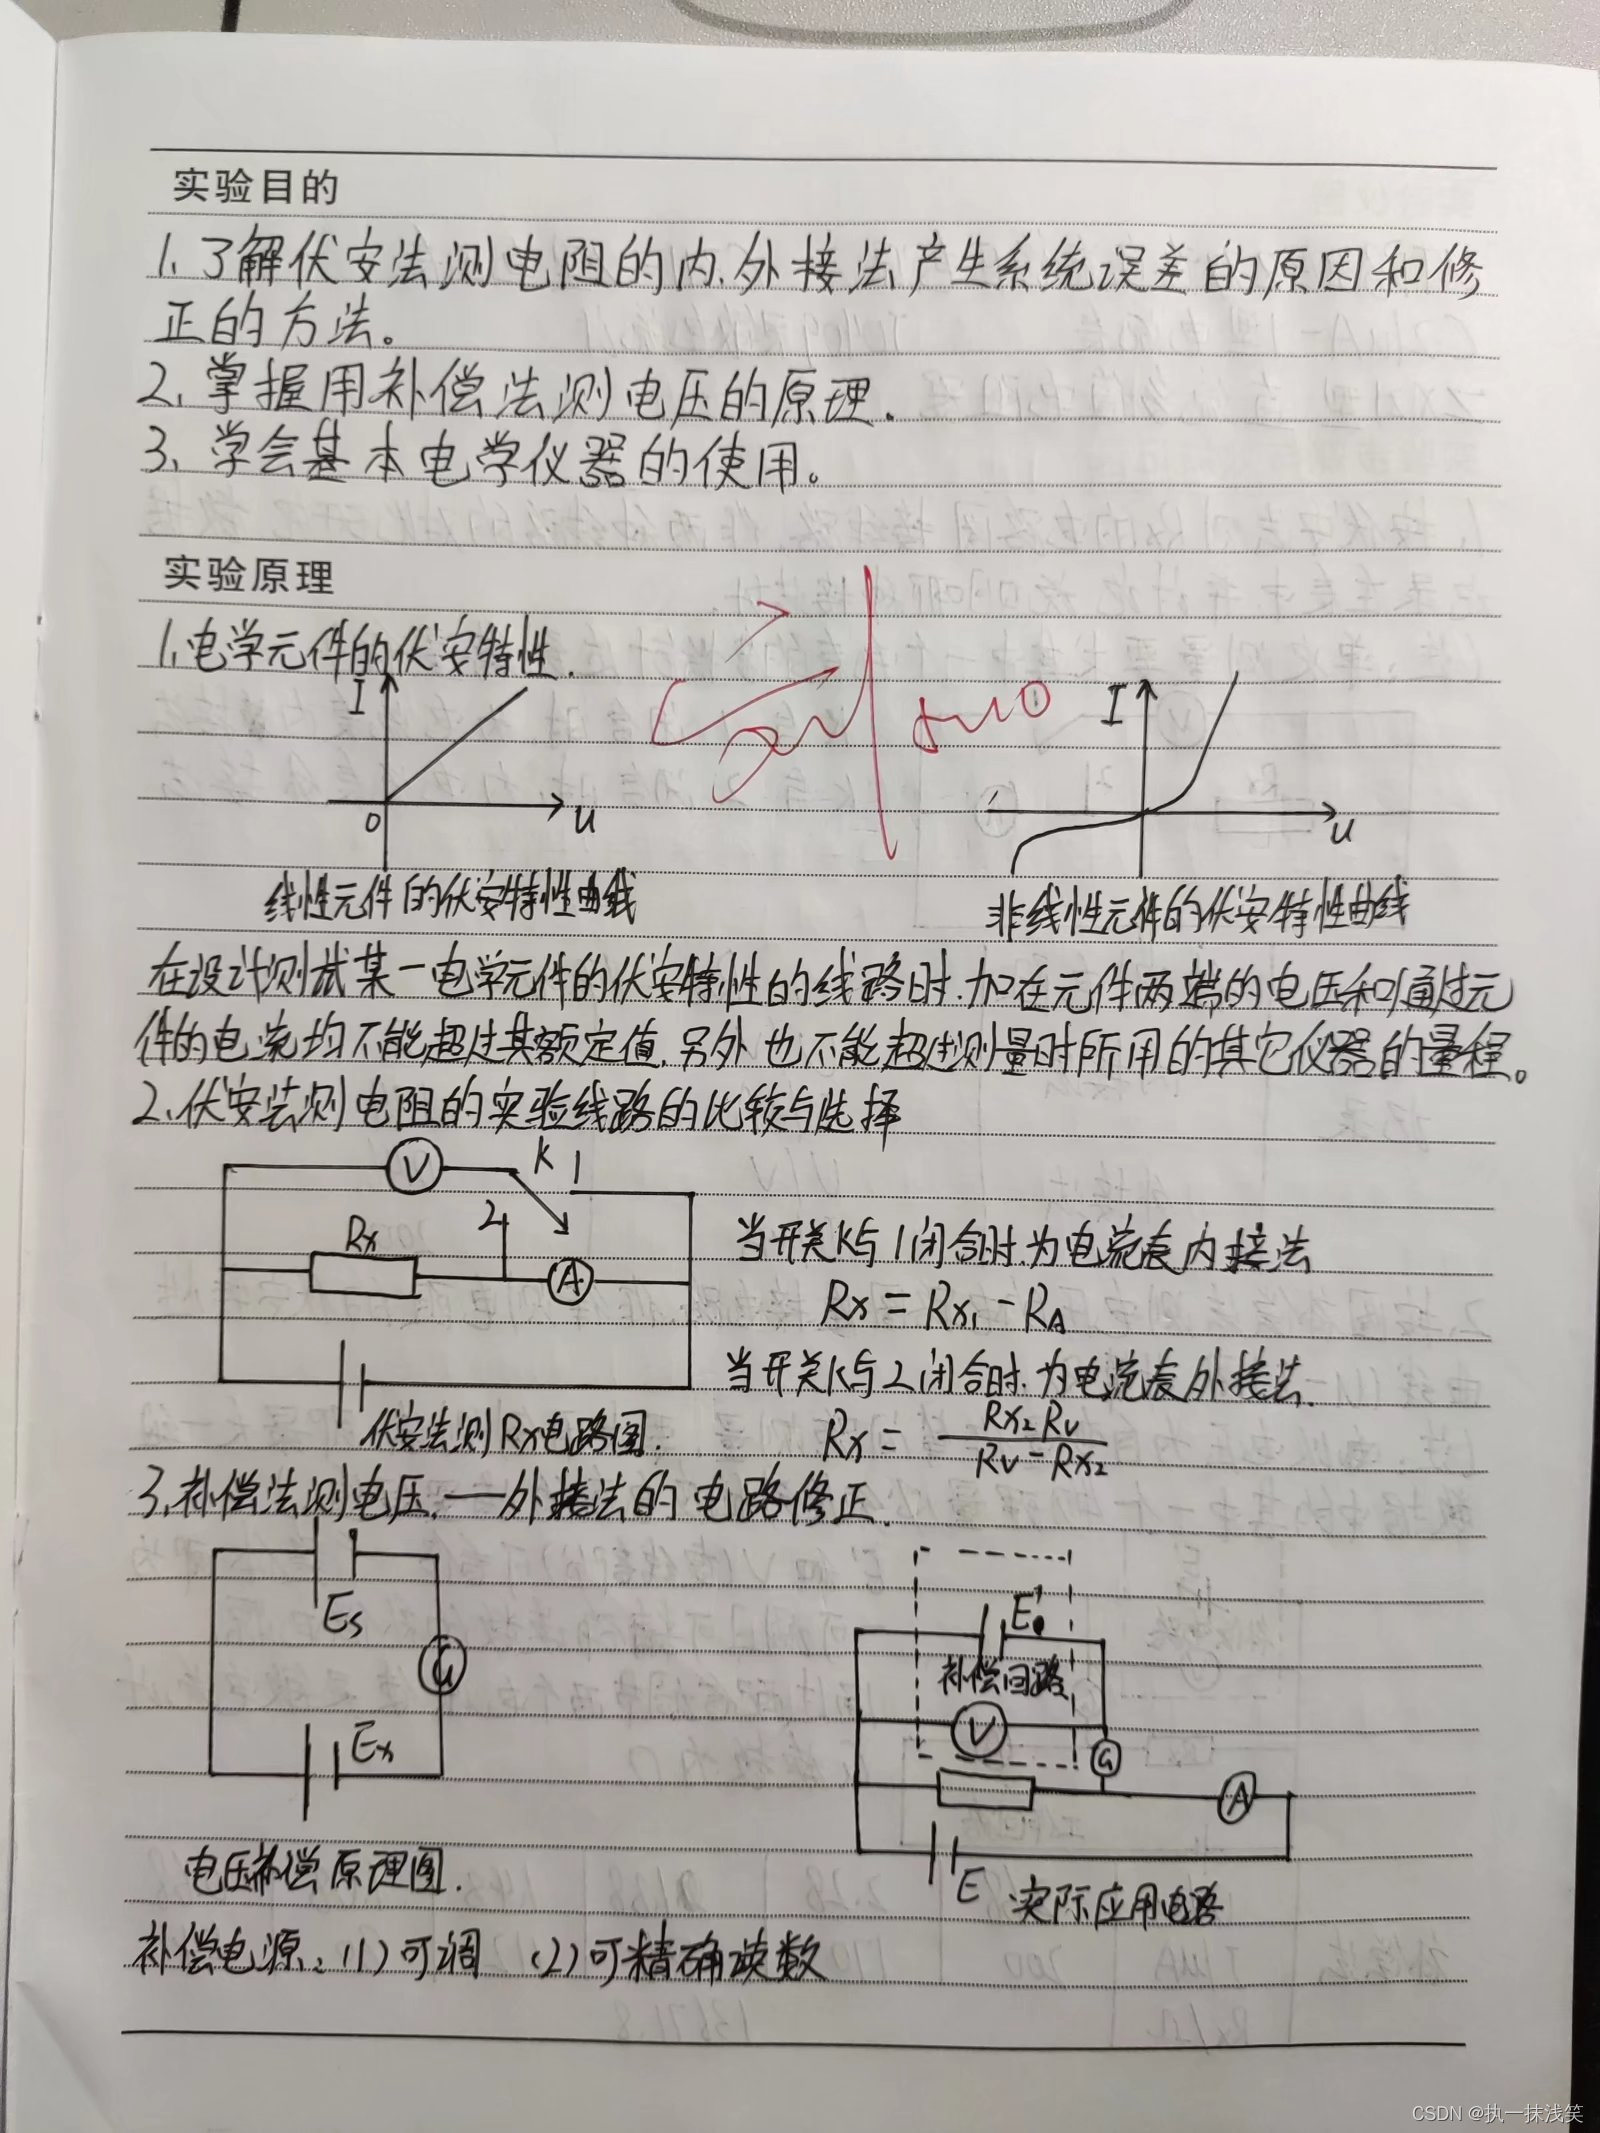 实验目的
1、了解伏安法测电阻的内、外接法产生系统误差的原因和修
正的方法。
2、掌握用补偿法测电压的原理.
3、学会基本电学仪器的使用。
实验原理
1、电学元件的伏安特性.
I
0
U
线性元件的伏安特性曲线
I
U
非线性元件的伏安特性曲线
在设计测试某一电学元件的伏安特性的线路时,加在元件两端的电压和通过元
件的电流均不能超过其额定值,另外也不能超过测量时所用的其它仪器的量程。
2、伏安法测电阻的实验线路的比较与选择
V
K
1
2
Rx
A
伏安法测Rx电路图.
当开关K与1闭合时,为电流表内接法
Rx = Rx₁ - RA
当开关K与2闭合时,为电流表外接法.
Rx = Rx₂Rv / Rv - Rx₂
3、补偿法测电压.——外接法的电路修正.
Es
G
Ex
电压补偿原理图.
补偿回路
V
G
A
E
实际应用电路
补偿电源:(1)可调 (2)可精确读数
CSDN @执一抹浅笑